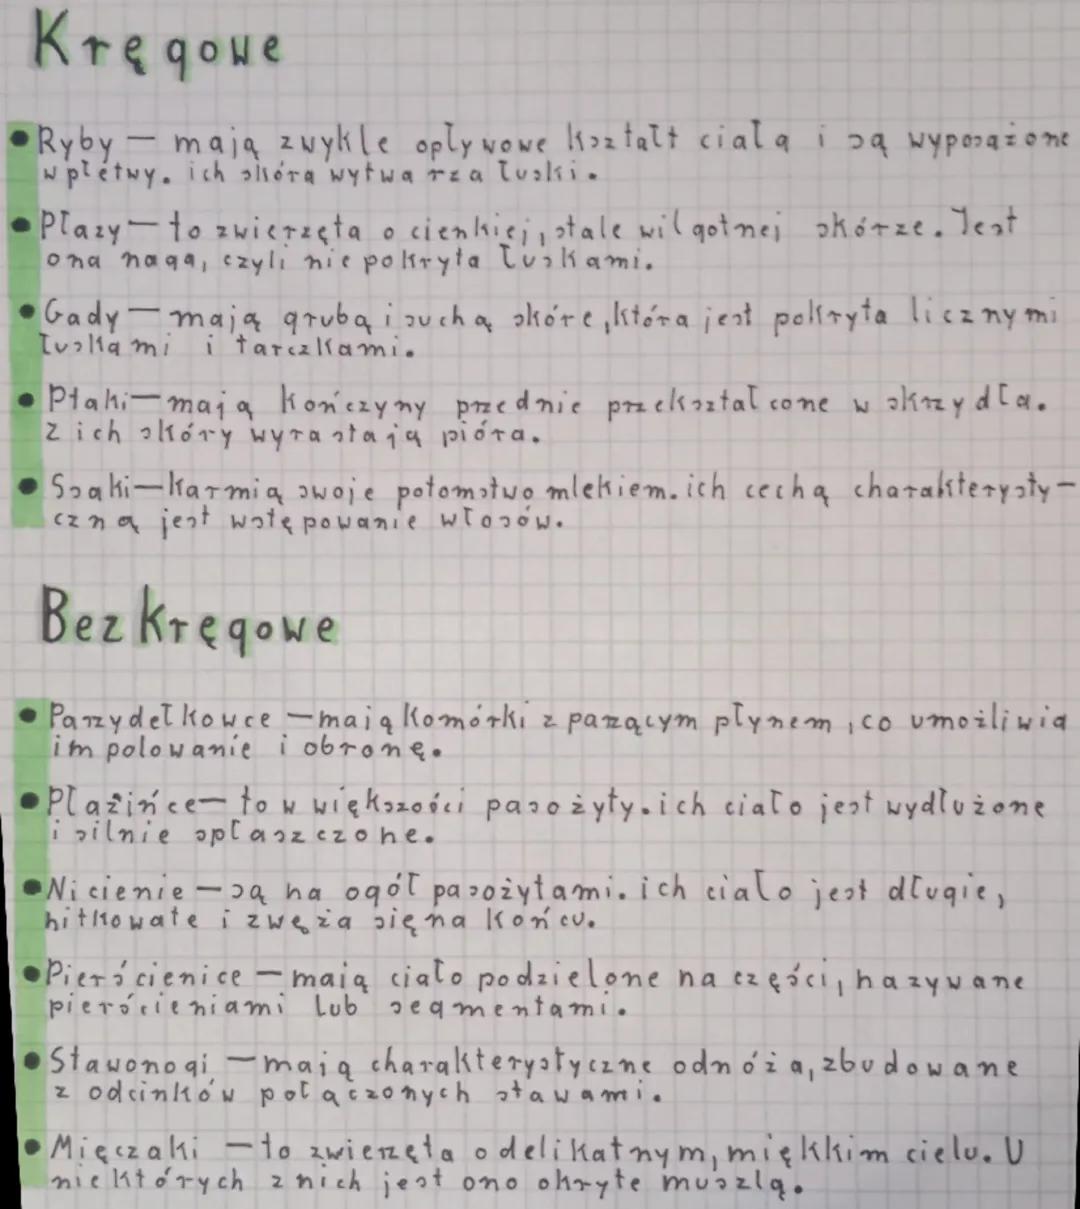 Kręgowe
• Ryby — mają zwykle opływowe kształt ciała i są wyposażone
w płetwy. ich skóra wytwarza łuski.
• Płazy — to zwierzęta o cienkiej, stale wilgotnej skórze. Jest
ona naga, czyli nie pokryta łuskami.
• Gady — mają grubą i suchą skóre, która jest pokryta licznymi
łuskami i tarczkami.
• Ptaki — mają kończyny przednie przekształcone w skrzydła.
z ich skóry wyrastają pióra.
• Ssaki — karmią swoje potomstwo mlekiem. ich cechą charakterysty-
czną jest wstępowanie włosów.
Bezkręgowe
• Parzydełkowce — mają komórki z parzącym płynem, co umożliwia
im polowanie i obronę.
• Płazińce — to w większości pasożyty. ich ciało jest wydłużone
i silnie spłaszczone.
• Nicienie — są na ogół pasożytami. ich ciało jest długie,
nitkowate i zwęża się na końcu.
• Pierścienice — maią ciało podzielone na części, nazywane
pierścieniami lub segmentami.
• Stawonogi — maią charakterystyczne odnóża, zbudowane
z odcinków połączonych stawami.
• Mięczaki — to zwierzęta o delikatnym, miękkim cielu. U
niektórych z nich jest ono okryte muszlą.